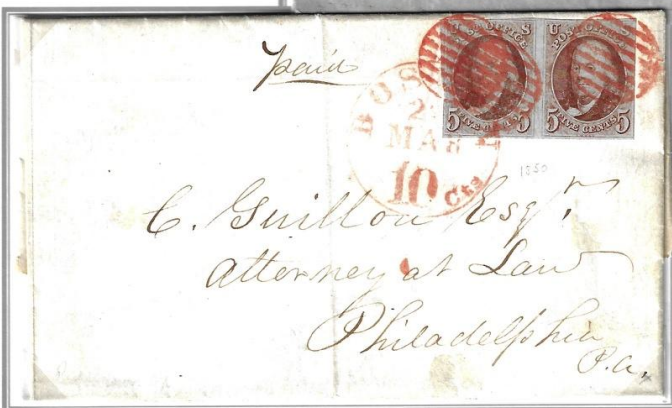 paid
U S
POST OFFICE
5 FIVE CENTS 5
U
POST OFFICE
5 FIVE CENTS 5
BOS
2
MAR
10 Cts
1850
C. Guillou Esqr.
Attorney at Law
Philadelphia
Pa.